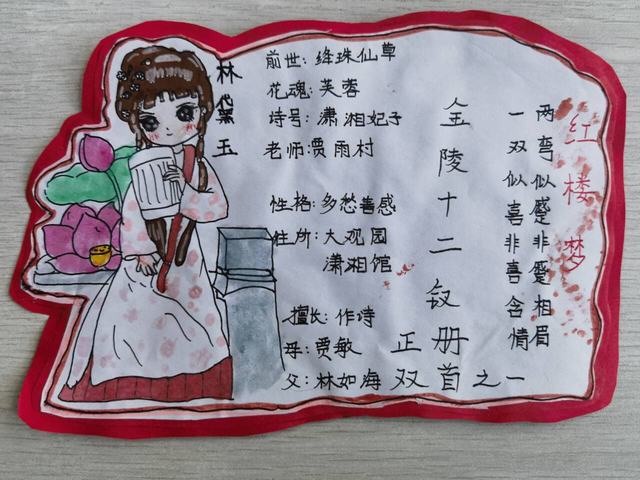 红楼梦
两弯似蹙非蹙相眉
一双似喜非善含情
林黛玉
前世:绛珠仙草
花魂:芙蓉
诗号:潇湘妃子
老师:贾雨村
性格:多愁善感
住所:大观园
潇湘馆
擅长:作诗
母:贾敏
父:林如海
金陵十二钗
正册
双首之一